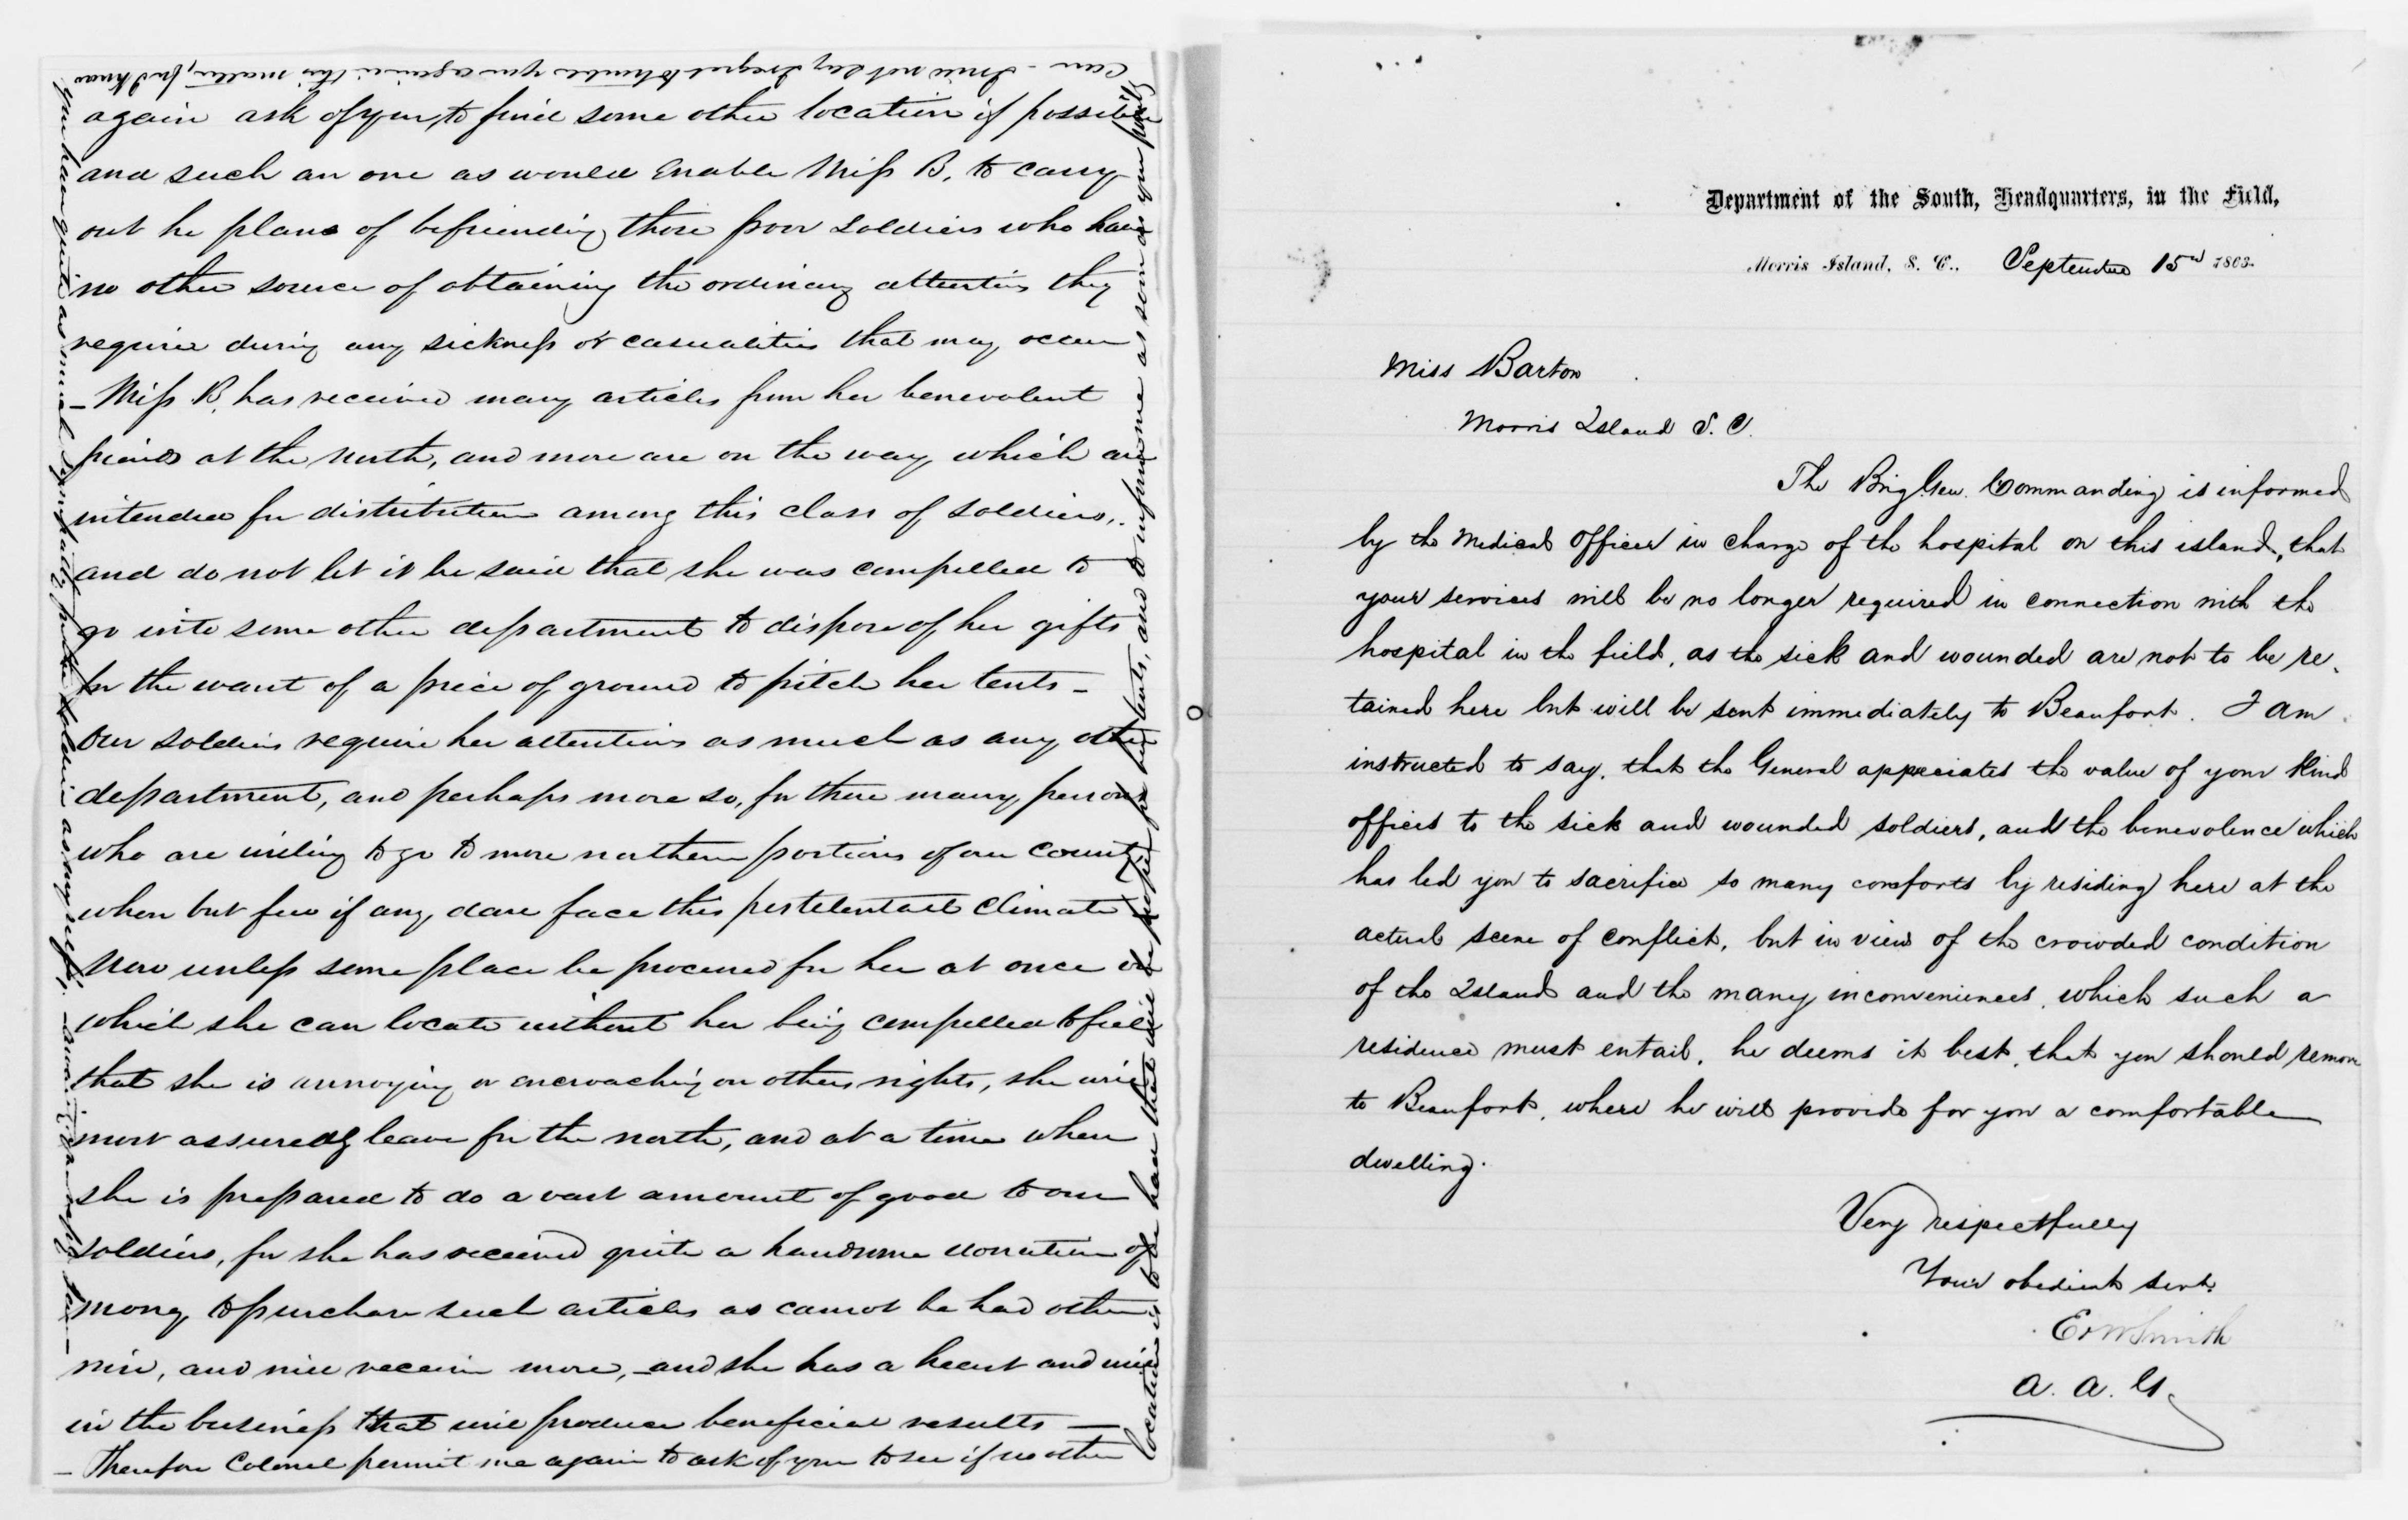 again ask of you, to find some other location if possible
and such an one as would enable Miss B. to carry
out he plans of befriending those poor soldiers who have
no other source of obtaining the ordinary attentions they
require during any sickness or casualities that may occur
– Miss B. has received many articles from her benevolent
friends at the north, and more are on the way which are
intended for distribution among this class of soldiers,.
and do not let it be said that she was compelled to
go into some other department to dispose of her gifts
for the want of a piece of ground to pitch her tents –
Our soldiers require her attentions as much as any other
department, and perhaps more so, for there many persons
who are willing to go to more northern portions of our country
when but few if any, dare face this pestelentail climate
Now unless some place be procured for her at once on
which she can locate without her being compelled to feel
that she is annoying or encroaching on others rights, she will
most assuredly leave for the north, and at a time when
she is prepared to do a vast amount of good to our
soldiers, for she has received quite a handsome donation of
money to purchase such articles as cannot be had other
wise, and will receive more, – and she has a heart and will
in the business that will produce beneficial results —
– Therefore Colonel permit me again to ask of you to see if no other
location is to be had that will be proper for her tents, and to inform me as soon as you possibly
can – I will not say I regret to trouble you again in this matter, for I know
you have quite as much sympathy for the soldiers as myself.
Department of the South, Headquarters, in the Field,
Morris Island, S. C., September 15th 1863.
Miss Barton
Morris Island S. C.
The Brig Gen. Commanding is informed
by the Medical Officer in charge of the hospital on this island, that
your services will be no longer required in connection with the
hospital in the field, as the sick and wounded are not to be re-
tained here but will be sent immediately to Beaufort. I am
instructed to say, that the General appreciates the value of your kind
offices to the sick and wounded soldiers, and the benevolence which
has led you to sacrifice so many comforts by residing here at the
actual scene of conflict, but in view of the crowded condition
of the Island and the many inconveniences, which such a
residence must entail, he deems it best, that you should remove
to Beaufort, where he will provide for you a comfortable
dwelling.
Very respectfully
Your obedient servt.
Ed W Smith
A. A. G.